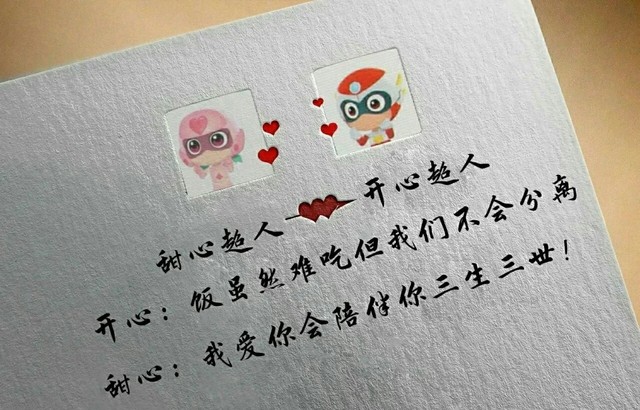 甜心超人 开心超人
开心：饭虽然难吃但我们不会分离
甜心：我爱你会陪伴你三生三世！